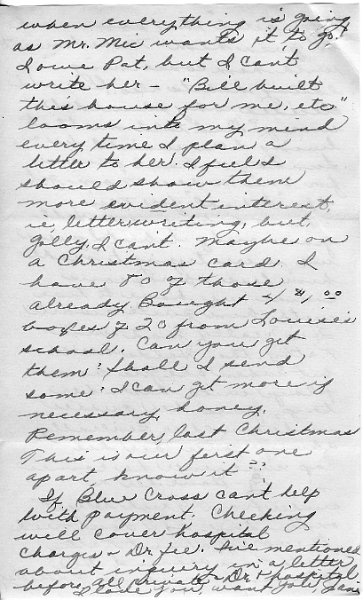 when everything is going
as Mr. Mic wants it to go!
I owe Pat, but I can't
write her - "Bill built
this house for me, etc"
looms into my mind
every time I plan a
letter to her. I feel I
should show them
more evident interest,
ie, letterwriting, but,
golly, I can't. Maybe on
a Christmas card. I
have 80 of those
already. Bought 4 $1.00
boxes of 20 from Louise's
school. Can you get
them? Shall I send
some? I can get more if
necessary, honey.
Remember, last Christmas
This is our first one
apart, know it??
If Blue Cross can't help
with payment. Checking
will cover hospital
charges & Dr. fee. I've mentioned
about inquiry in a letter
before, all private Dr. & hospital
I love you, want you, Jan